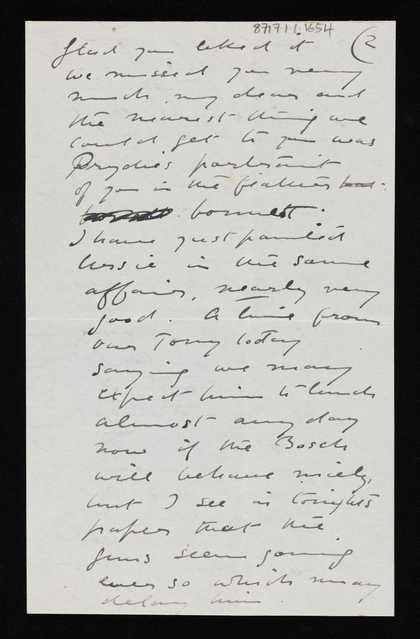 8717.1.1.1654
(2
Glad you liked it
we missed you very
much my dear and
the nearest thing we
could get to you was
Prydie's portrait
of you in the feather
bonnet.
I have just painted
Lessie in the same
affair, nearly very
good. A line from
our Tony today
saying we may
expect him to lunch
almost any day
now if the Bosch
will behave nicely,
but I see in tonight's
papers that the
guns seem going
ever so which may
delay him.